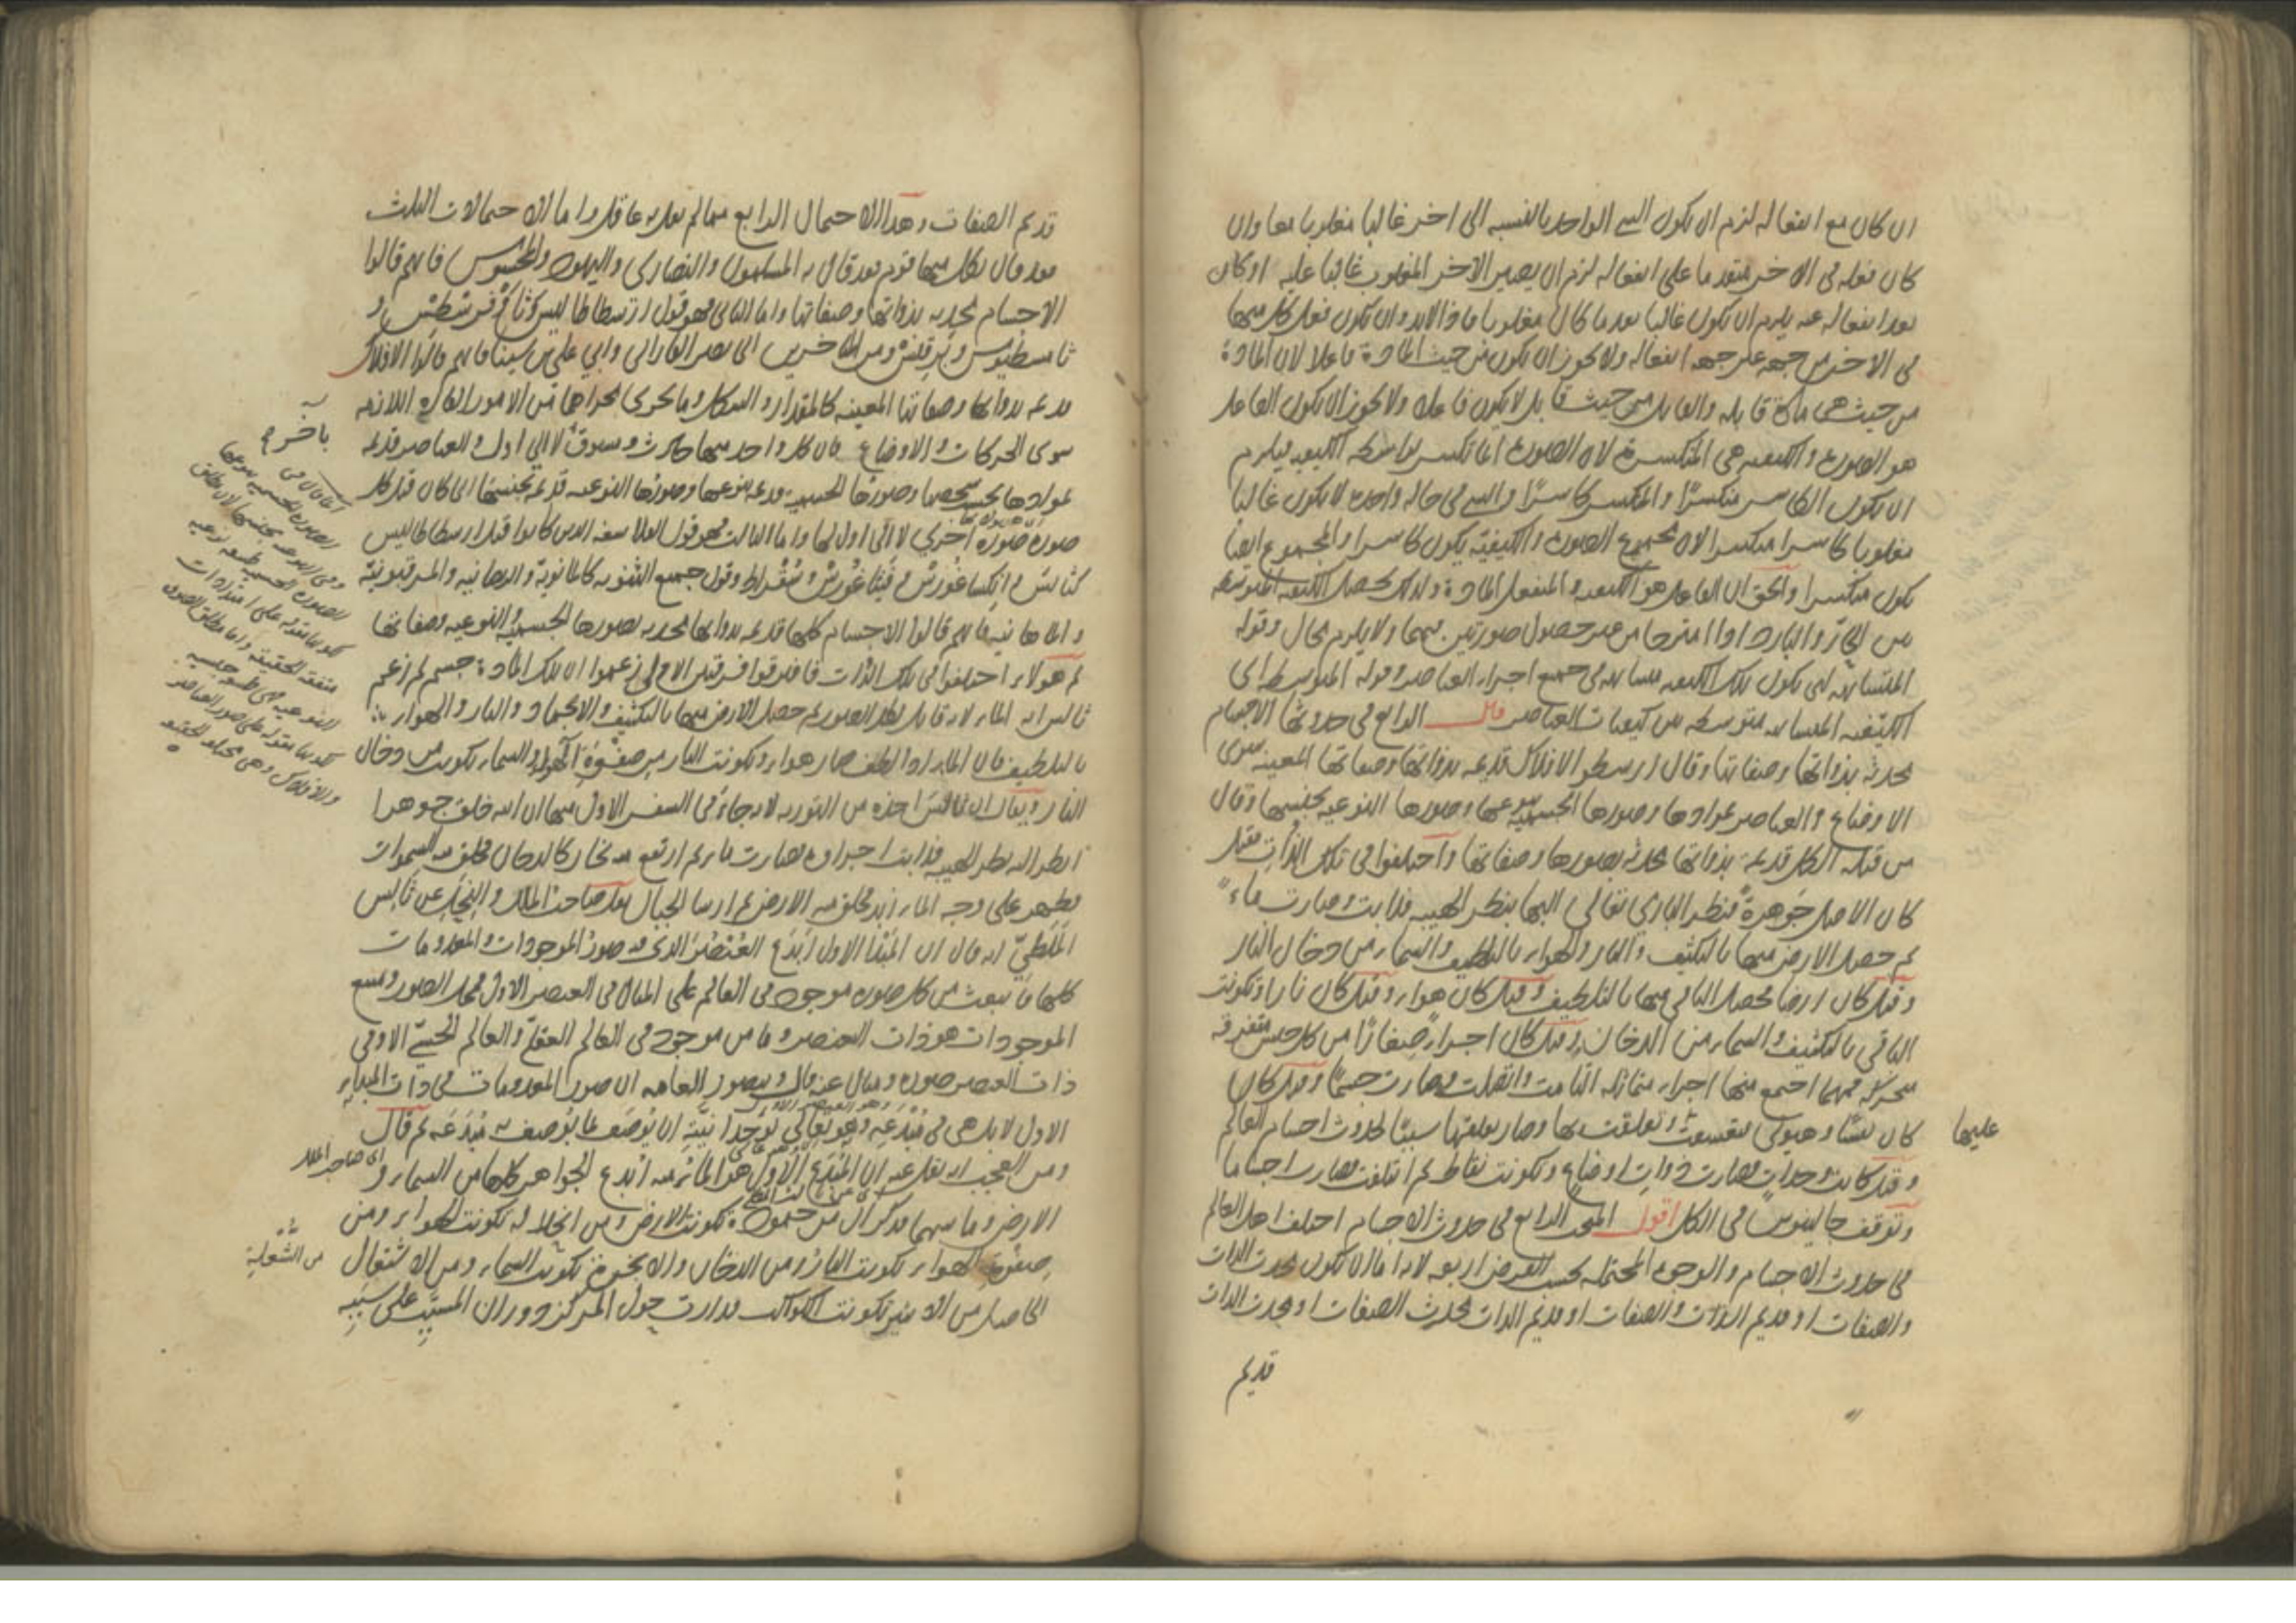 ان كان مع انفعاله لزم ان يكون الشي الواحد بالنسبه الى اخر غالبا مغلوبا معا وان
كان فعله في الاخر متقدما على انفعاله لزم ان يصير الاخر المغلوب غالبا عليه او كان
بعد انفعاله عنه يلزم ان يكون غالبا بعد ما كان مغلوبا فاذا لابد وان يكون فعل كل منهما
في الاخر من جهه غير جهه انفعاله ولا يجوز ان يكون من حيث المادة فاعلا لان المادة
من حيث هى مادة قابله والقابل من حيث قابل لا يكون فاعله ولا يجوز ان يكون الفاعل
هو الصورة والكيفيه هى المنكسرة لان الصورة انما تكسر بواسطه الكيفيه فيلزم
ان يكون الكاسر منكسرًا والمنكسر كاسرًا والشي في حاله واحده لا يكون غالبا
مغلوبا كاسرا منكسرا لان مجموع الصورة والكيفيّة يكون كاسرا والمجموع ايضا
يكون منكسرا والحق ان الفاعل هو الكيفيه والمنفعل المادة ولذلك يحصل الكيفيه المتوسطه
بين الحارّ والبارد اذا امتزجا من غير حصول صورتين فيهما ولا يلزم محال وقوله
المتشابهه اى يكون تلك الكيفيه متشابهه في جميع اجزاء العناصر وقوله المتوسطه اى
الكيفيه المتشابهه متوسطه بين كيفيات العناصر قال الرابع في حدوثها الاجسام
محدثه بذواتها وصفاتها وقال ارسطو الافلاك قديمه بذواتها وصفاتها المعينه سوى
الاوضاع والعناصر بموادها وصورها الجسميه بنوعها وصورها النوعيه بجنسها وقال
من قبله الكل قديمة بذواتها محدثه بصورها وصفاتها واختلفوا في تلك الذات فقيل
كان الاصل جَوهرةً فنظر البارى تعالى اليها بنظر الهيبه فذابت وصارت ماءً
ثم حصل الارض منها بالتكثيف والنار والهواء بالتلطيف والسماء من دخان النار
وقيل كان ارضا فحصل الباقي منها بالتلطيف وقيل كان هواء وقيل كان نارا وتكونت
الباقي بالتكثيف والسماء من الدخان وقيل كان اجزاء صغارًا من كل جنس متفرقه
متحركه فمهما اجتمع منها اجزاء متماثله التأمت واتصلت وصارت جسمًا وقيل كان
كان نفسًا وهيولى فتعشقت وتعلقت بها وصار تعلقها سببًا لحدوث اجسام العالم
عليها
وقيل كانت وحدات فصارت ذوات اوضاع وتكونت نقاط ثم ائتلفت فصارت اجساما
وتوقف جالينوس في الكل اقول المبحث الرابع في حدوث الاجسام اختلف اهل العالم
في حدوث الاجسام والوجوه المحتمله بحسب الفرض اربعه لانه اما ان يكون محدث الذات
والصفات او قديم الذات والصفات او قديم الذات محدث الصفات او محدث الذات
قديم
قديم الصفات وهذا الاحتمال الرابع مما لم يقل به عاقل واما الاحتمالات الثلث
فقد قال بكل منها قوم فقد قال به المسلمون والنصارى واليهود والمجوس فانهم قالوا
الاجسام محدثه بذواتها وصفاتها واما الثاني فهو قول ارسطاطاليس وثاوفرسطس و
ثامسطيوس وبرقلس ومن المتاخرين ابي نصر الفارابي وابي علي بن سينا فانهم قالوا الافلاك
قديمه بذواتها وصفاتها المعينه كالمقدار والشكل وما يجرى مجراهما من الامور القارة اللازمه
سوى الحركات والاوضاع فان كل واحد منها حادث ومسبوق لا الى اول والعناصر قديمه
بآخر
بموادها بحسب شخصها وصورها الجسميه قديمه بنوعها وصورها النوعيه قديمه بجنسها اى كان قبل كل
صورة صورة اخرى لا الى اول لها واما الثالث فهو قول الفلاسفه الذين كانوا قبل ارسطاطاليس
كثالس وانكساغورس وفيثاغورس وسقراط وقول جميع الثنويه كالمانوية والديصانيه والمرقيونية
والماهانيه فانهم قالوا الاجسام كلها قديمه بذواتها محدثه بصورها الجسميه والنوعيه وصفاتها
ثم هولاء اختلفوا في تلك الذات فافترقوا فرقتين الاولى زعموا ان تلك المادة جسم ثم زعم
ثاليس انه الماء لانه قابل لكل الصور ثم حصل الارض منها بالتكثيف والانجماد والنار والهواء
بالتلطيف فان الماء اذا لطف صار هواء وتكونت النار من صفوة الهواء والسماء تكونت من دخان
النار ويقال ان ثاليس اخذه من التوريه لانه جاء في السفر الاول منها ان الله خلق جوهرا
فنظر اليه نظر الهيبه فذابت اجزاوه فصارت ماء ثم ارتفع منه بخار كالدخان فخلق منه السموات
فظهر على وجه الماء زبد فخلق منه الارض ثم ارسا الجبال نقل صاحب الملل والنحل عن ثاليس
الملطيّ انه قال ان المبدا الاول ابدع العنصر الذى فيه صور الموجودات والمعدومات
كلها فانبعث من كل صوره موجود في العالم على المثال في العنصر الاول فمحل الصور ومنبع
الموجودات هو ذات العنصر وما من موجود في العالم العقليّ والعالم الحسّي الا وفي
ذات العنصر صوره ومثال عنه قال ويتصور العامه ان صور المعدومات في ذات المبدا
الاول لا بل هى في مُبدَعِه وهو تعالى بوحدانيته ان يُوصَف بما يُوصَف به مُبدَعَه ثم قال
ومن العجب انه نقل عنه ان المُبدَع الاول هو الماء ومنه ابدع الجواهر كلها من السماء و
اى صاحب الملل
الارض وما بينهما فذكر ان من جموده تكونت الارض ومن انحلاله تكونت الهواء ومن
صفوة الهواء تكونت النار ومن الدخان والابخرة تكونت السماء ومن الاشتعال
من الشعلة
الحاصل من الاثير تكونت الكواكب فدارت حول المركز دوران المسبَّب على سَببه